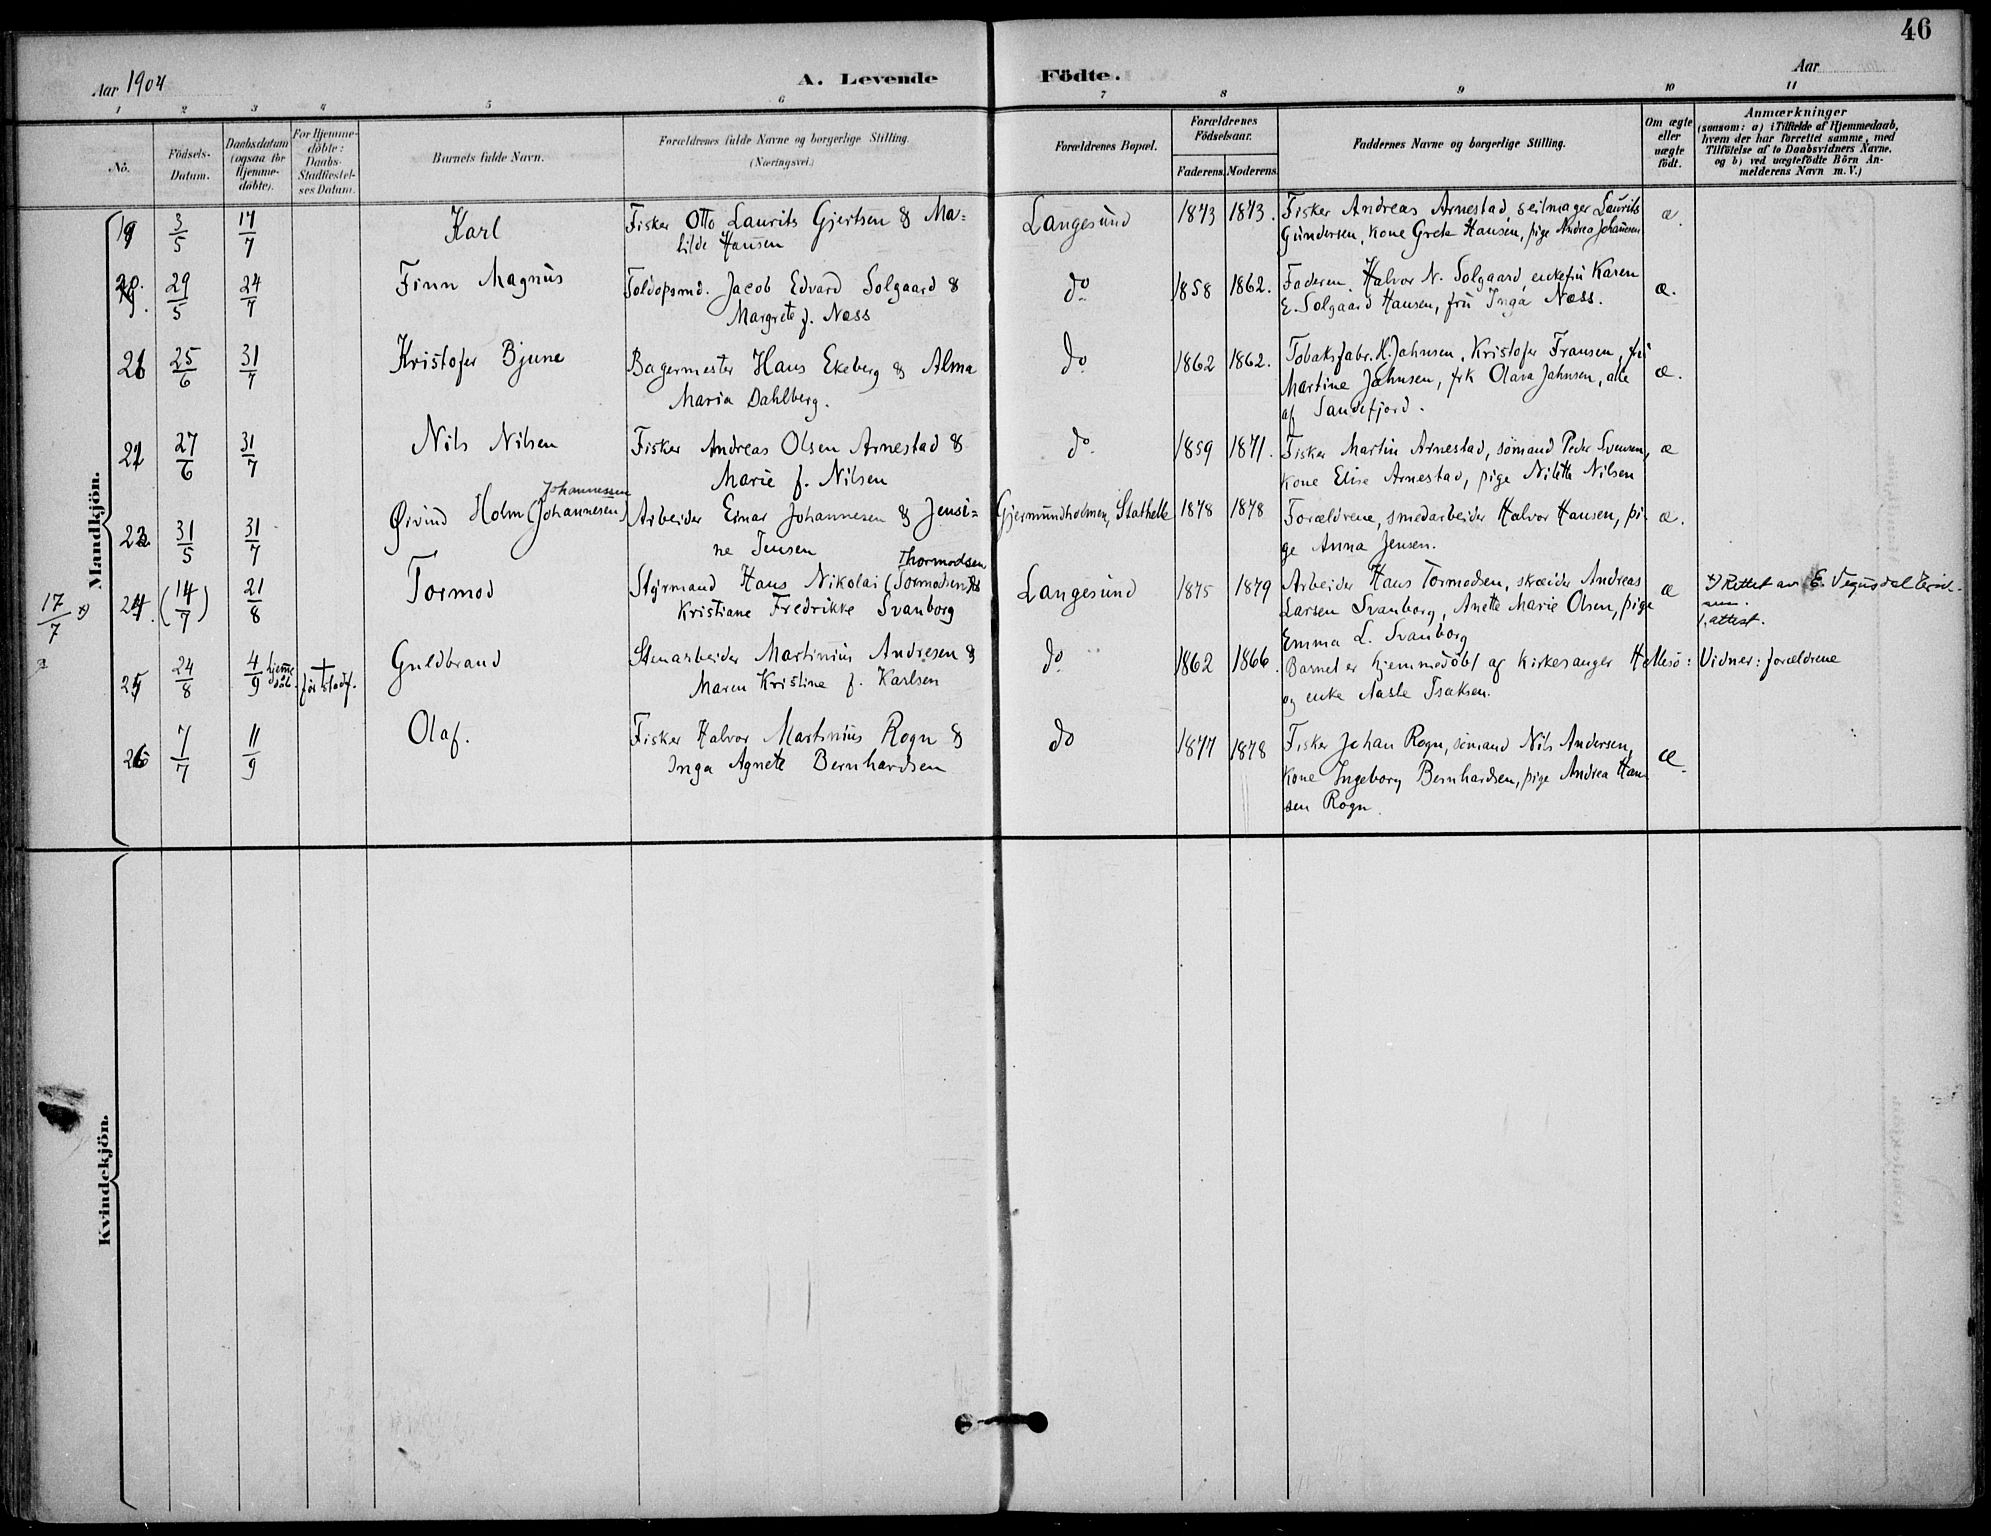 46
Aar 1904
A. Levende Födte.
Aar
1 2 3 4 5 6 7 8 9 10 11
No.
Födsels-
Datum.
Daabsdatum
(ogsaa for
Hjemme-
döbte).
For Hjemme-
döbte:
Daabs-
Stadfæstel-
ses Datum.
Barnets fulde Navn.
Forældrenes fulde Navne og borgerlige Stilling.
(Næringsvei.)
Forældrenes Bopæl.
Forældrenes
Födselsaar.
Faderens. Moderens.
Faddernes Navne og borgerlige Stilling.
Om ægte
eller
uægte
födt.
Anmærkninger
(saasom: a) i Tilfælde af Hjemmedaab,
hvem der har forrettet samme, med
Tilföielse af to Daabsvidners Navne,
og b) ved uægtefödte Börn An-
melderens Navn m. V.)
Mandkjön.
19 3/5 17/7 Karl
Fisker Otto Laurits Gjertsen & Ma-
tilde Hansen
Langesund 1873 1873.
Fisker Andreas Arnestad, seilmager Laurits
Gundersen, kone Grete Hansen, pige Andrea Johansen
æ.
20. 29/5 24/7 Finn Magnus
Toldopsmd. Jacob Edvard Solgaard &
Margrete f. Næss
do 1858 1862.
Faderen, Halvor N. Solgaard, enkefru Karen
E. Solgaard Hansen, fru Inga Næss.
æ.
21 25/6 31/7 Kristofer Bjune
Bagermester Hans Ekeberg & Alma
Maria Dahlberg.
do 1862 1862.
Tobaksfabr. H. Jahnsen, Kristofer Fransen, fru
Martine Jahnsen, frk Olava Jahnsen, alle
af Sandefjord.
æ.
22 27/6 31/7 Nils Nilsen
Fisker Andreas Olsen Arnestad &
Marie f. Nilsen
do 1859 1871.
Fisker Martin Arnestad, sømand Peder Svensen,
kone Elise Arnestad, pige Nilette Nilsen
æ
23 31/5 31/7 Øivind Holm (Johannesen)
Johannessen
Arbeider Einar Johannesen & Jensi-
ne Jensen
Gjermundholmen, Stathelle 1878 1878
Forældrene, smedarbeider Halvor Hansen, pi-
ge Anna Jensen.
æ.
17/7 x) 24. (14/7) 21/8 Tormod
Thormodsen
Styrmand Hans Nikolai (Tormodsen) &
Kristiane Fredrikke Svanborg
Langesund 1875 1879
Arbeider Hans Tormodsen, skræder Andreas
Larsen Svanborg, Anette Marie Olsen, pige
Emma L. Svanborg
æ
x) Rettet av E. Vegusdal Erik-
sen.
f. attest.
25 24/8 4/9 hjemme
døbt. + før stadf. Guldbrand
Stenarbeider Martinius Andresen &
Maren Kristine f. Karlsen
do 1862 1866.
Barnet er hjemmedøbt af kirkesanger Hellesø: Vidner: forældrene
og enke Aasle Isaksen.
26 7/7 11/9 Olaf.
Fisker Halvor Martinius Rogn &
Inga Agnete Bernhardsen
do 1877 1878
Fisker Johan Rogn, sømand Nils Andersen,
kone Ingeborg Bernhardsen, pige Andrea Han-
sen Rogn.
æ.
Kvindekjön.